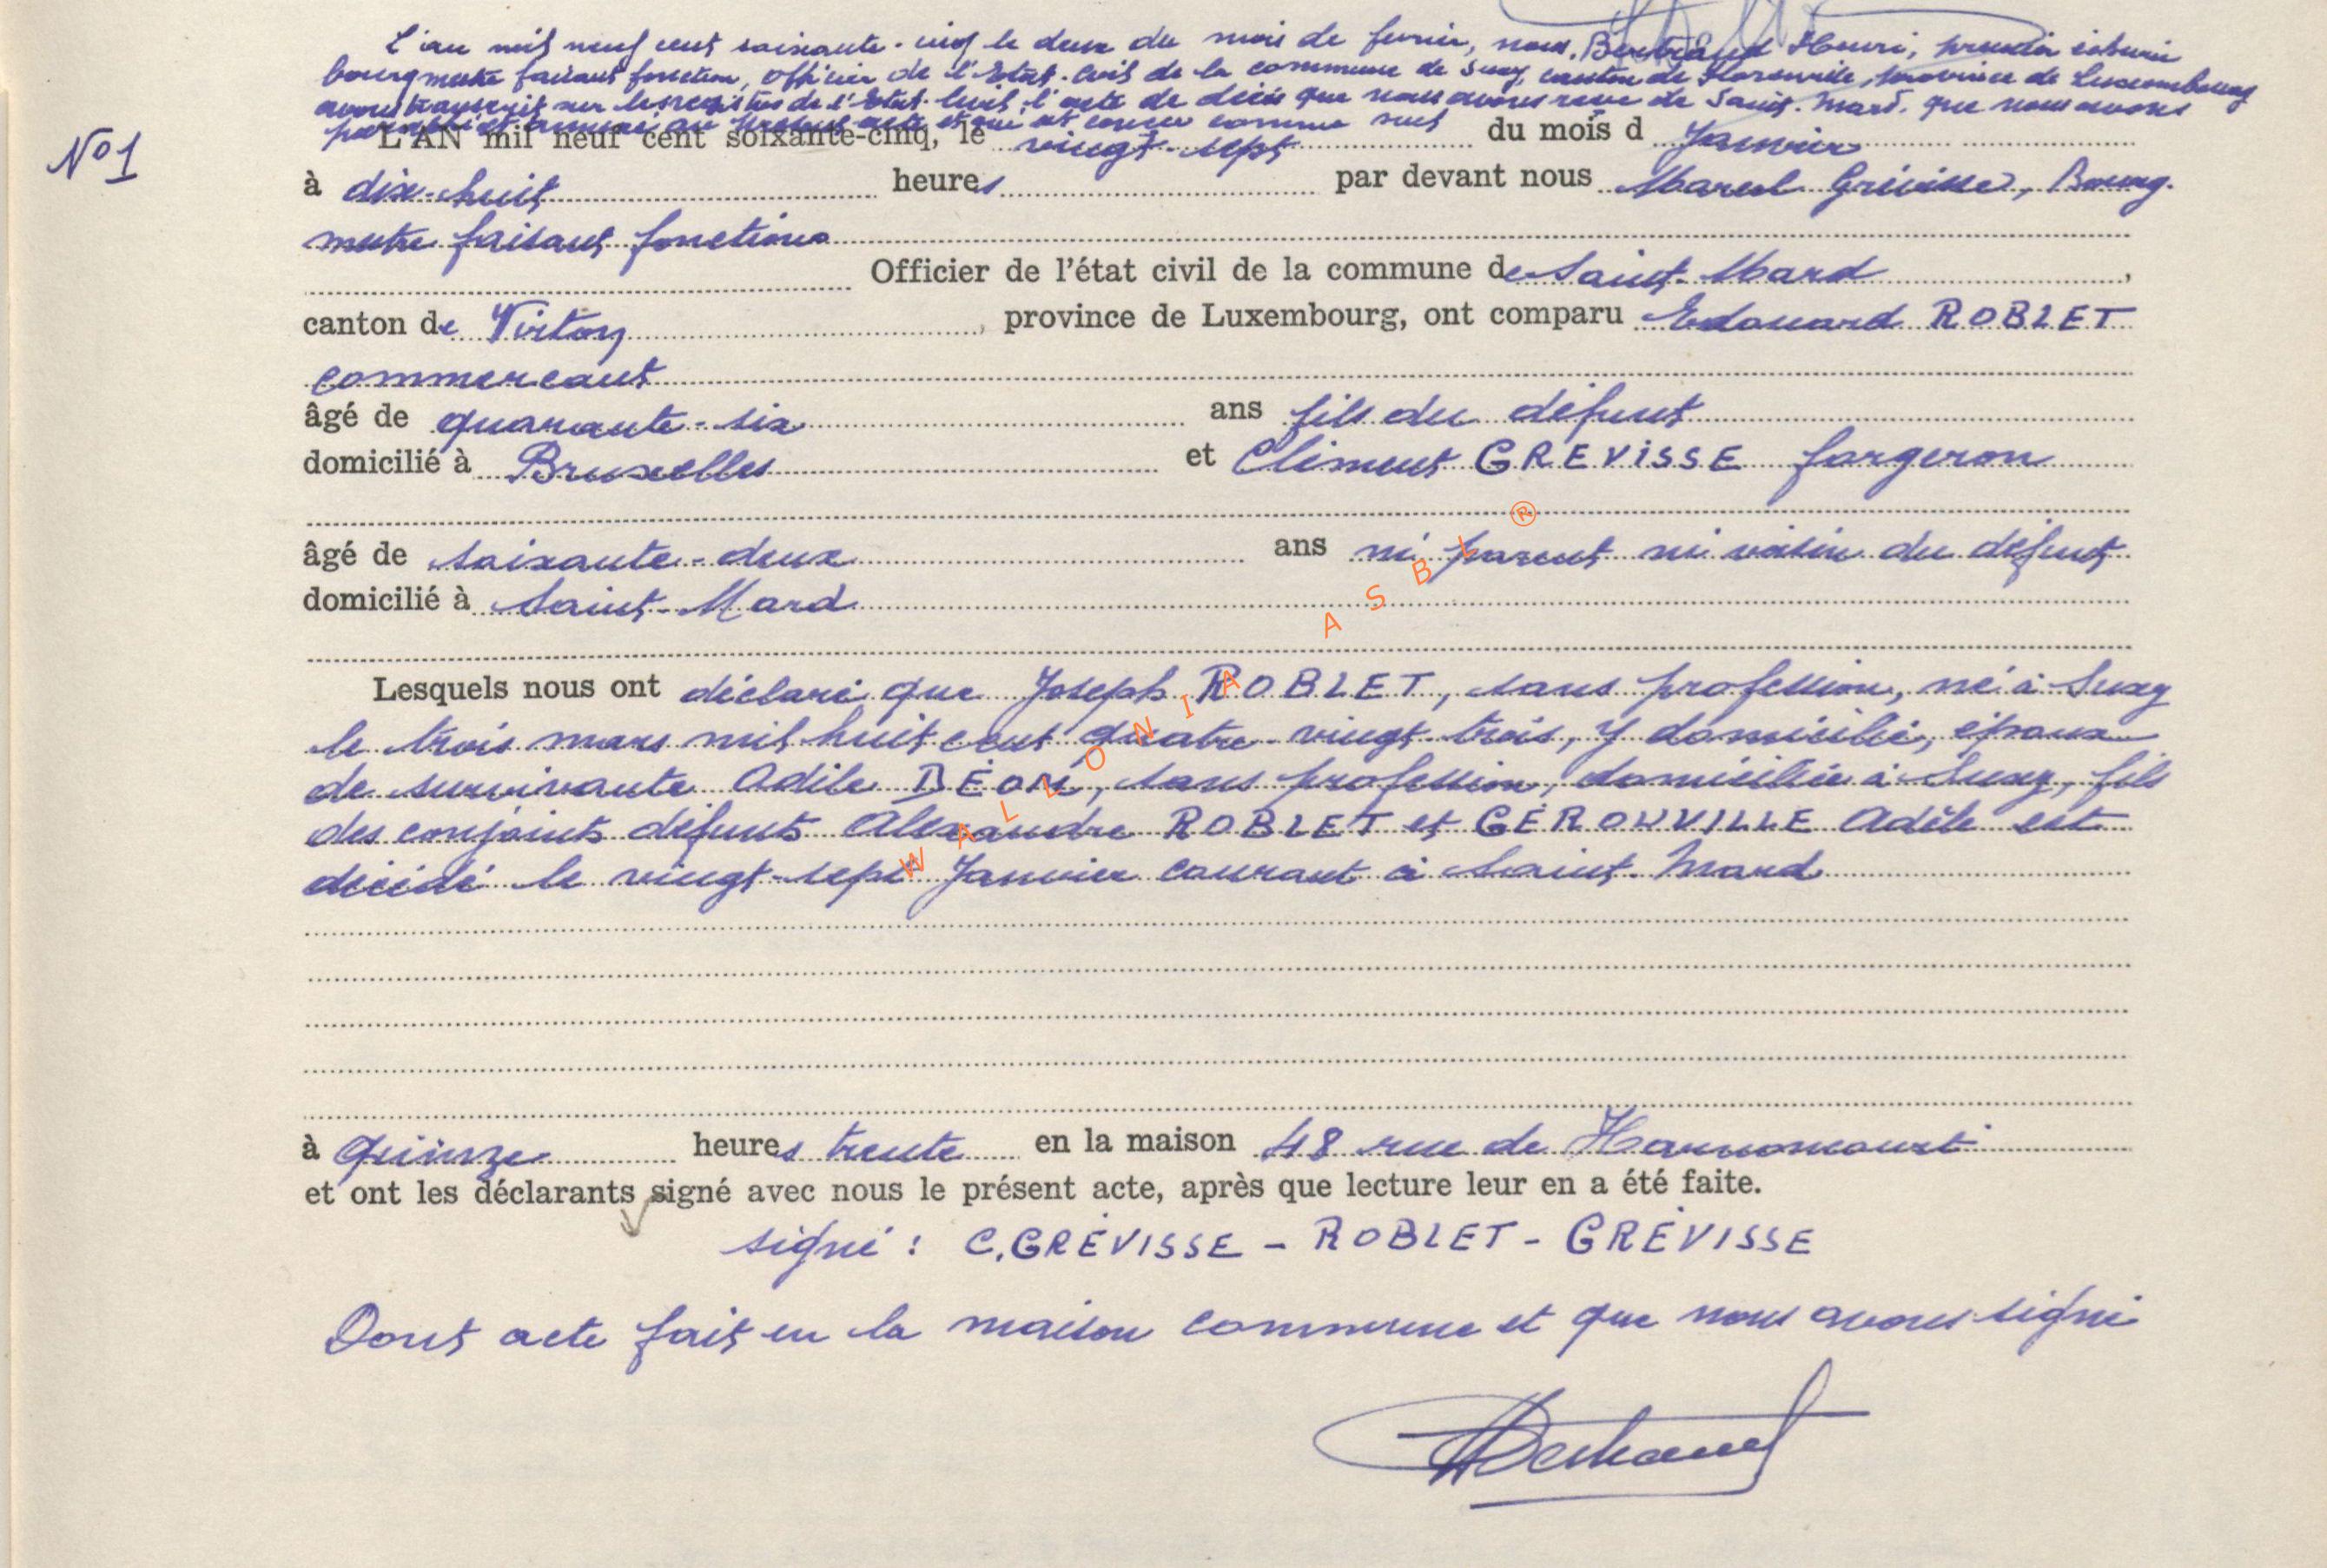 L'an mil neuf cent soixante-cinq le deux du mois de février, nous, Bertrand Henri, premier échevin
bourgmestre faisant fonction, officier de l'Etat-Civil de la commune de Suxy, canton de Florenville, province de Luxembourg
avons transcrit sur les registres de l'Etat-Civil, l'acte de décès que nous avons reçu de Saint-Mard, que nous avons
et au présent acte et qui est conçu comme suit
N°1
L'AN mil neuf cent soixante-cinq, le vingt-sept du mois d Janvier
à dix-huit heures par devant nous Marcel Grévisse, Bourg-
mestre faisant fonctions
Officier de l'état civil de la commune de Saint-Mard,
canton de Virton, province de Luxembourg, ont comparu Edouard ROBLET
commercant
âgé de quarante-six ans fils du défunt
domicilié à Bruxelles et Clément GREVISSE forgeron
âgé de soixante-deux ans ni parent ni voisin du défunt
domicilié à Saint-Mard
Lesquels nous ont déclaré que Joseph ROBLET, sans profession, né à Suxy
le trois mars mil huit cent quatre-vingt trois, y domicilié, époux
de survivante Adile DÉOM, sans profession, domiciliée à Suxy, fils
des conjoints défunts Alexandre ROBLET et GÉROUVILLE Adèle est
décédé le vingt-sept Janvier courant à Saint-Mard
à quinze heures trente en la maison 48 rue de Harnoncourt
et ont les déclarants signé avec nous le présent acte, après que lecture leur en a été faite.
signé : C. GRÉVISSE - ROBLET - GRÉVISSE
Dont acte fait en la maison commune et que nous avons signé
HBertrand
WALLONIA ASBL ®